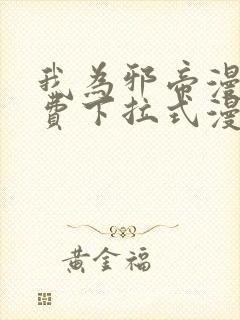 我为邪帝漫
费下拉式漫
黄金福